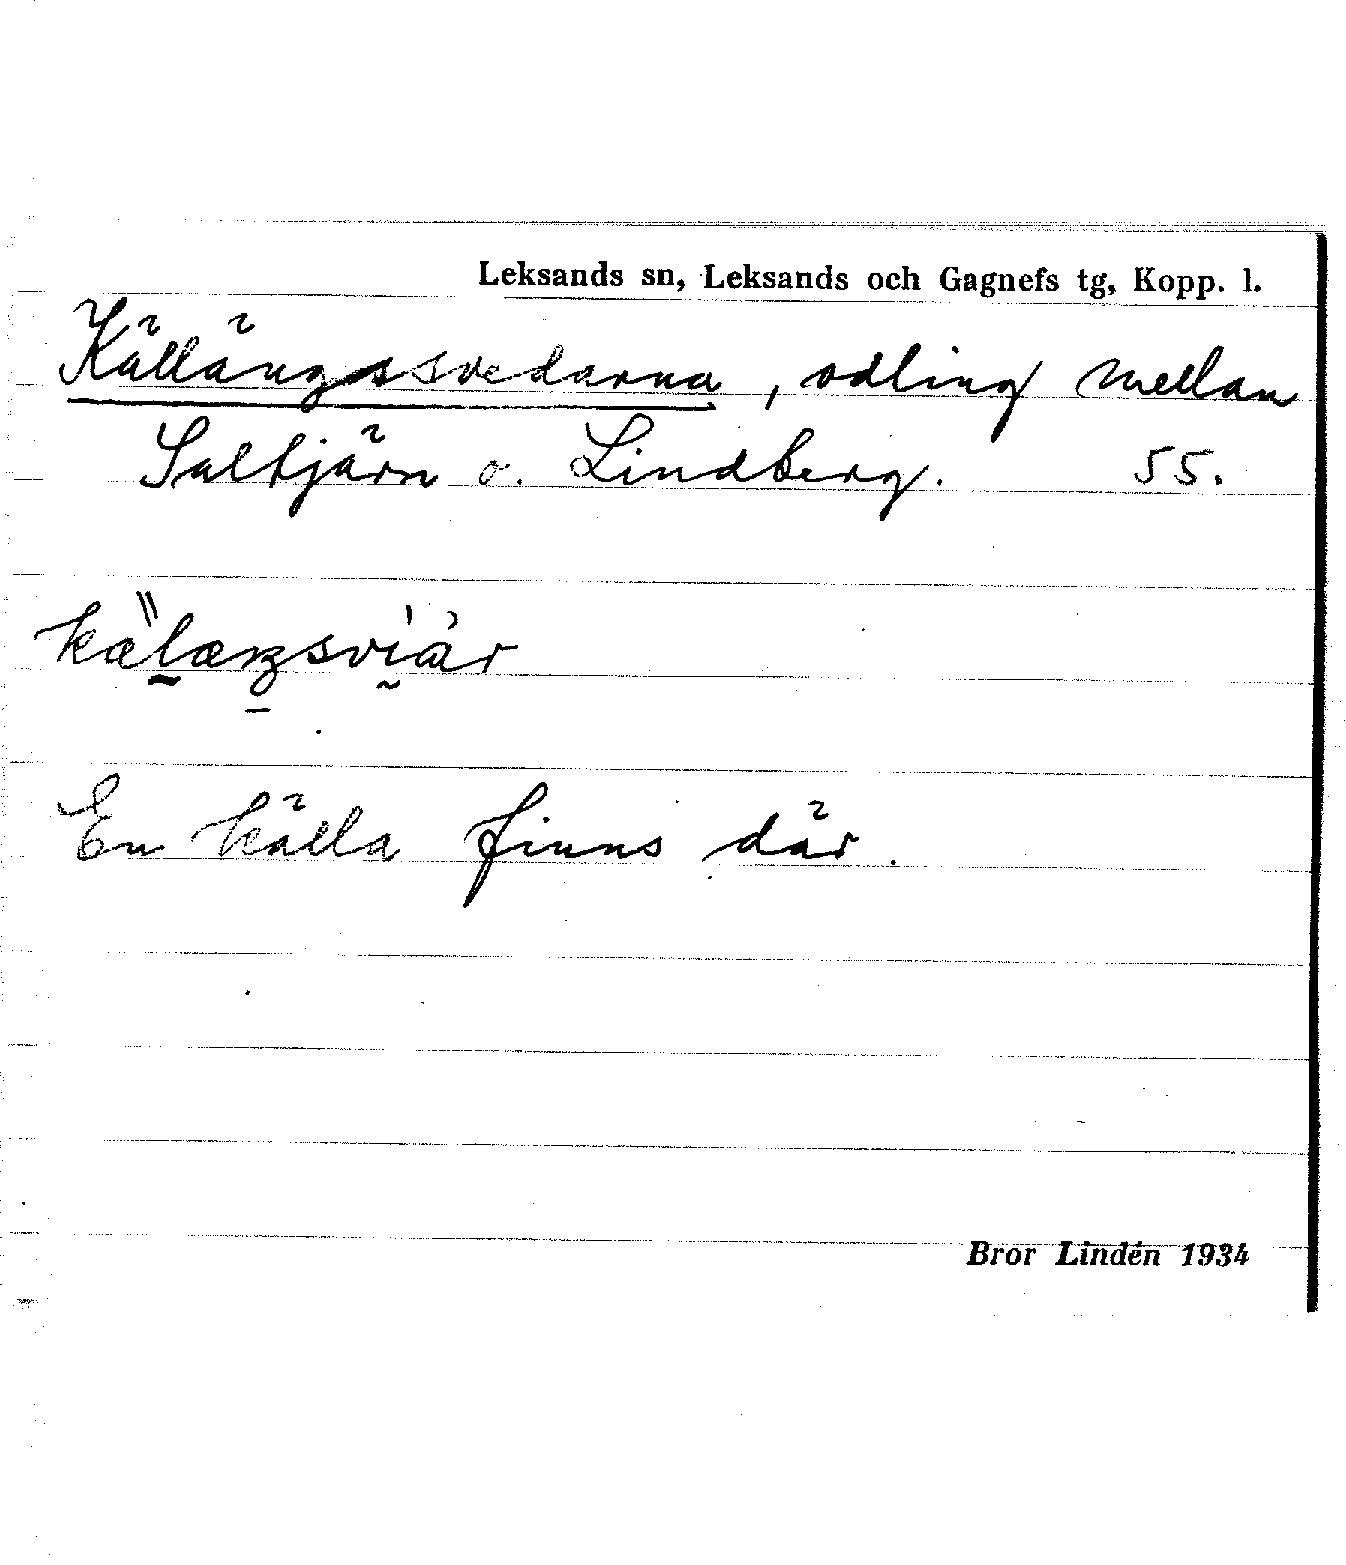 Leksands sn, Leksands och Gagnefs tg, Kopp. l.
Källängssvedarna, odling mellan
Saltjärn o. Lindberg. 55.
En källa finns där.
Bror Lindén 1934